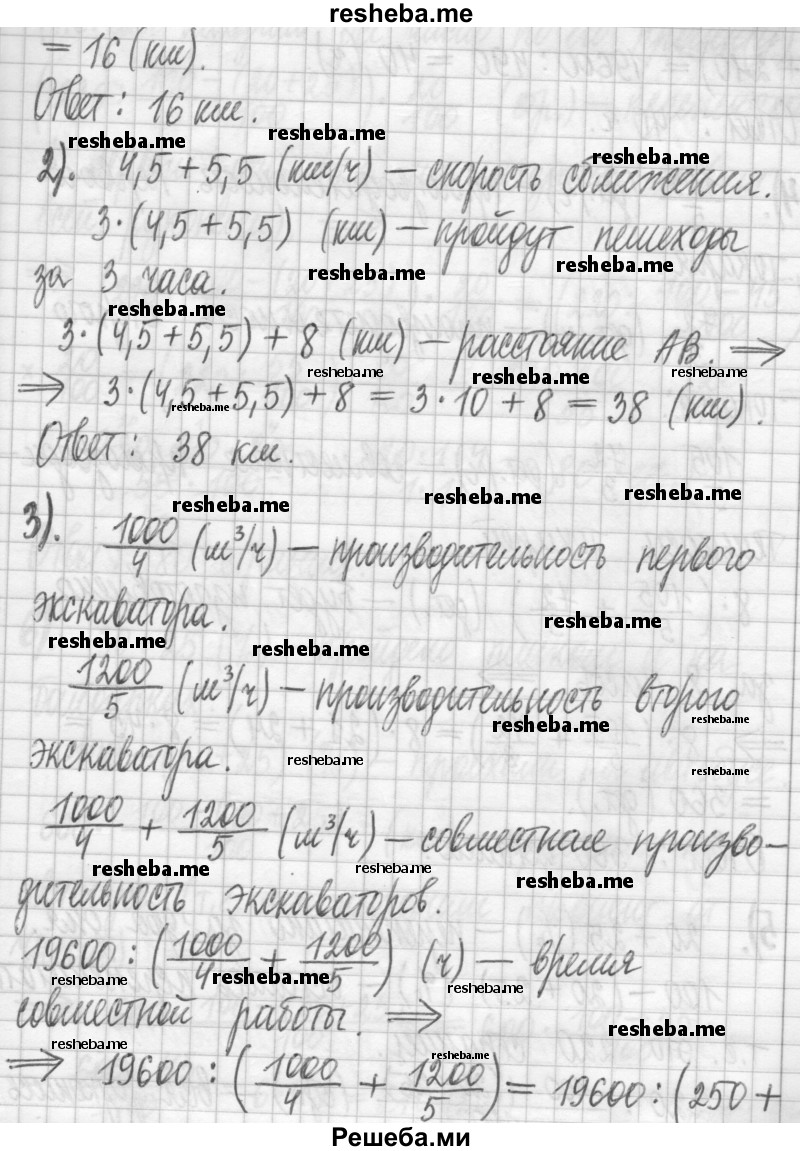 resheba.me
= 16 (км).
Ответ: 16 км.
resheba.me resheba.me resheba.me
2). 4,5 + 5,5 (км/ч) – скорость сближения.
3·(4,5 + 5,5) (км) – пройдут пешеходы
resheba.me resheba.me
за 3 часа.
resheba.me
3·(4,5 + 5,5) + 8 (км) – расстояние АВ. ⟹
resheba.me resheba.me resheba.me
⟹ 3·(4,5 + 5,5) + 8 = 3·10 + 8 = 38 (км).
resheba.me
Ответ: 38 км.
resheba.me resheba.me resheba.me
3). 1000/4 (м³/ч) – производительность первого
экскаватора.
resheba.me resheba.me resheba.me
1200/5 (м³/ч) – производительность второго
resheba.me resheba.me
экскаватора.
resheba.me resheba.me
1000/4 + 1200/5 (м³/ч) – совместная произво-
resheba.me resheba.me resheba.me
дительность экскаваторов.
19600 : (1000/4 + 1200/5) (ч) – время
resheba.me resheba.me resheba.me
совместной работы. ⟹
resheba.me resheba.me resheba.me
⟹ 19600 : (1000/4 + 1200/5) = 19600 : (250 +
Решеба.ми